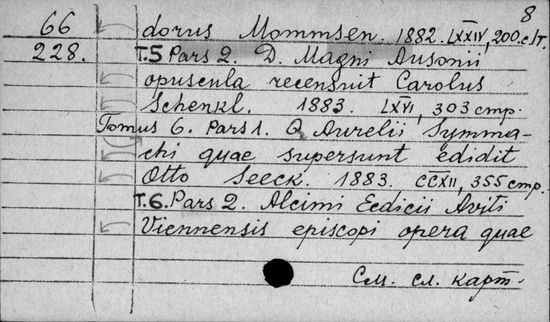 8
66 dorus Mommsen. 1882. LXXIV, 200.c/т.
228. T.5 Pars 2. D. Magni Ausonii
opuscula recensuit Carolus
Schenkl. 1883. LXVI, 303 стр.
Tomus 6. Pars 1. Q Aurelii Symma-
chi quae supersunt edidit
Otto Seeck. 1883. CCXII, 355 стр.
T.6. Pars 2. Alcimi Ecdicii Aviti
Viennensis episcopi opera quae
См. сл. карт-